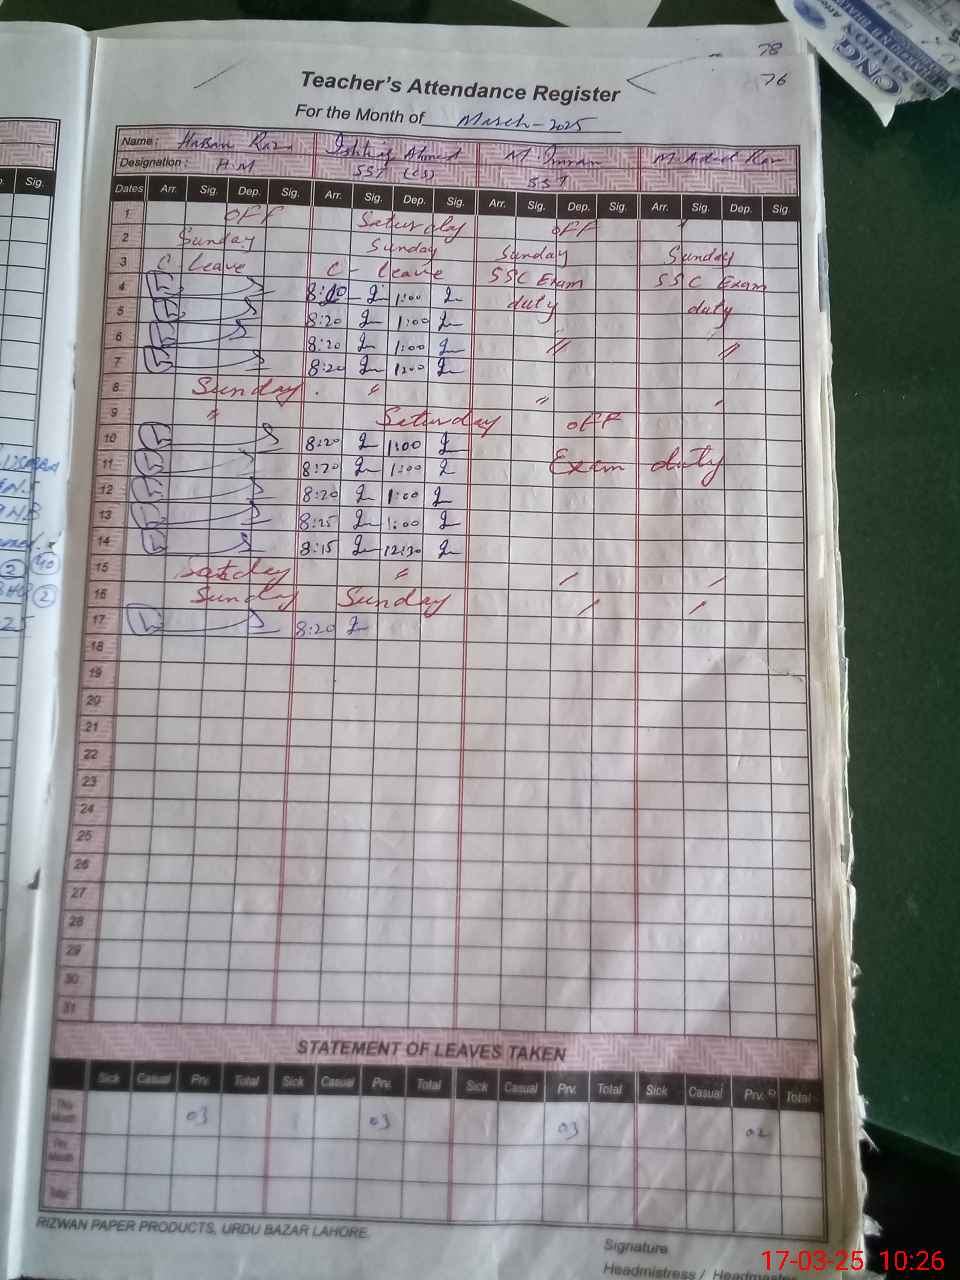 78
76
Teacher's Attendance Register
For the Month of March-2025
Name: Hassan Raza Ishtiaq Ahmed M Imran M Adeel
Designation: H.M SST (CS) SST
Dates Arr. Sig. Dep. Sig. Arr. Sig. Dep. Sig. Arr. Sig. Dep. Sig. Arr. Sig. Dep. Sig.
1 OFF Saturday OFF
2 Sunday Sunday Sunday Sunday
3 C Leave C - Leave SSC Exam SSC Exam
4 1:00 duty duty
5 8:20 1:00
6 8:20 1:00 " "
7 8:20 1:00
8 Sunday "
9 " Saturday OFF
10 8:20 1:00
11 8:20 1:00 Exam duty
12 8:20 1:00
13 8:25 1:00
14 8:15 12:30
15 Satday "
16 Sunday Sunday
17 8:20
18
19
20
21
22
23
24
25
26
27
28
29
30
31
STATEMENT OF LEAVES TAKEN
Sick Casual Prv. Total Sick Casual Prv. Total Sick Casual Prv. Total Sick Casual Prv. Total
This Month 03 03 03 02
Prv. Month
Total
RIZWAN PAPER PRODUCTS, URDU BAZAR LAHORE.
Signature
Headmistress / Headmaster
17-03-25 10:26
Sig.
CNG STATION